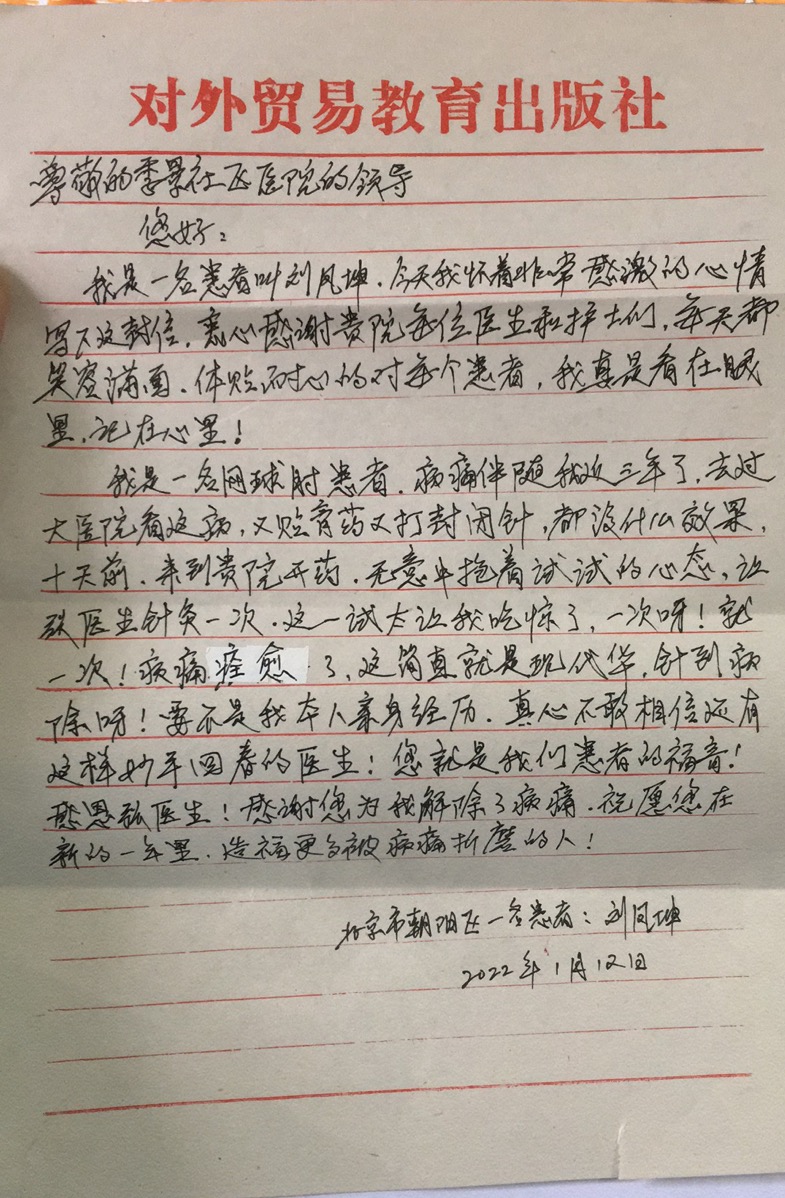 对外贸易教育出版社
尊敬的季景社区医院的领导
您好：
我是一名患者叫刘凤坤．今天我怀着非常感激的心情
写下这封信，衷心感谢贵院每位医生和护士们，每天都
笑容满面．体贴耐心的对每个患者，我真是看在眼
里．记在心里！
我是一名网球肘患者．病痛伴随我近三年了，去过
大医院看这病，又贴膏药又打封闭针，都没什么效果，
十天前．来到贵院开药．无意中抱着试试的心态，让
医生针灸一次．这一试太让我吃惊了，一次呀！就
一次！病痛痊愈了，这简直就是现代华，针到病
除呀！要不是我本人亲身经历．真心不敢相信还有
这样妙手回春的医生！您就是我们患者的福音！
感恩医生！感谢您为我解除了病痛．祝愿您在
新的一年里．造福更多被病痛折磨的人！
北京市朝阳区一名患者：刘凤坤
2022年1月12日